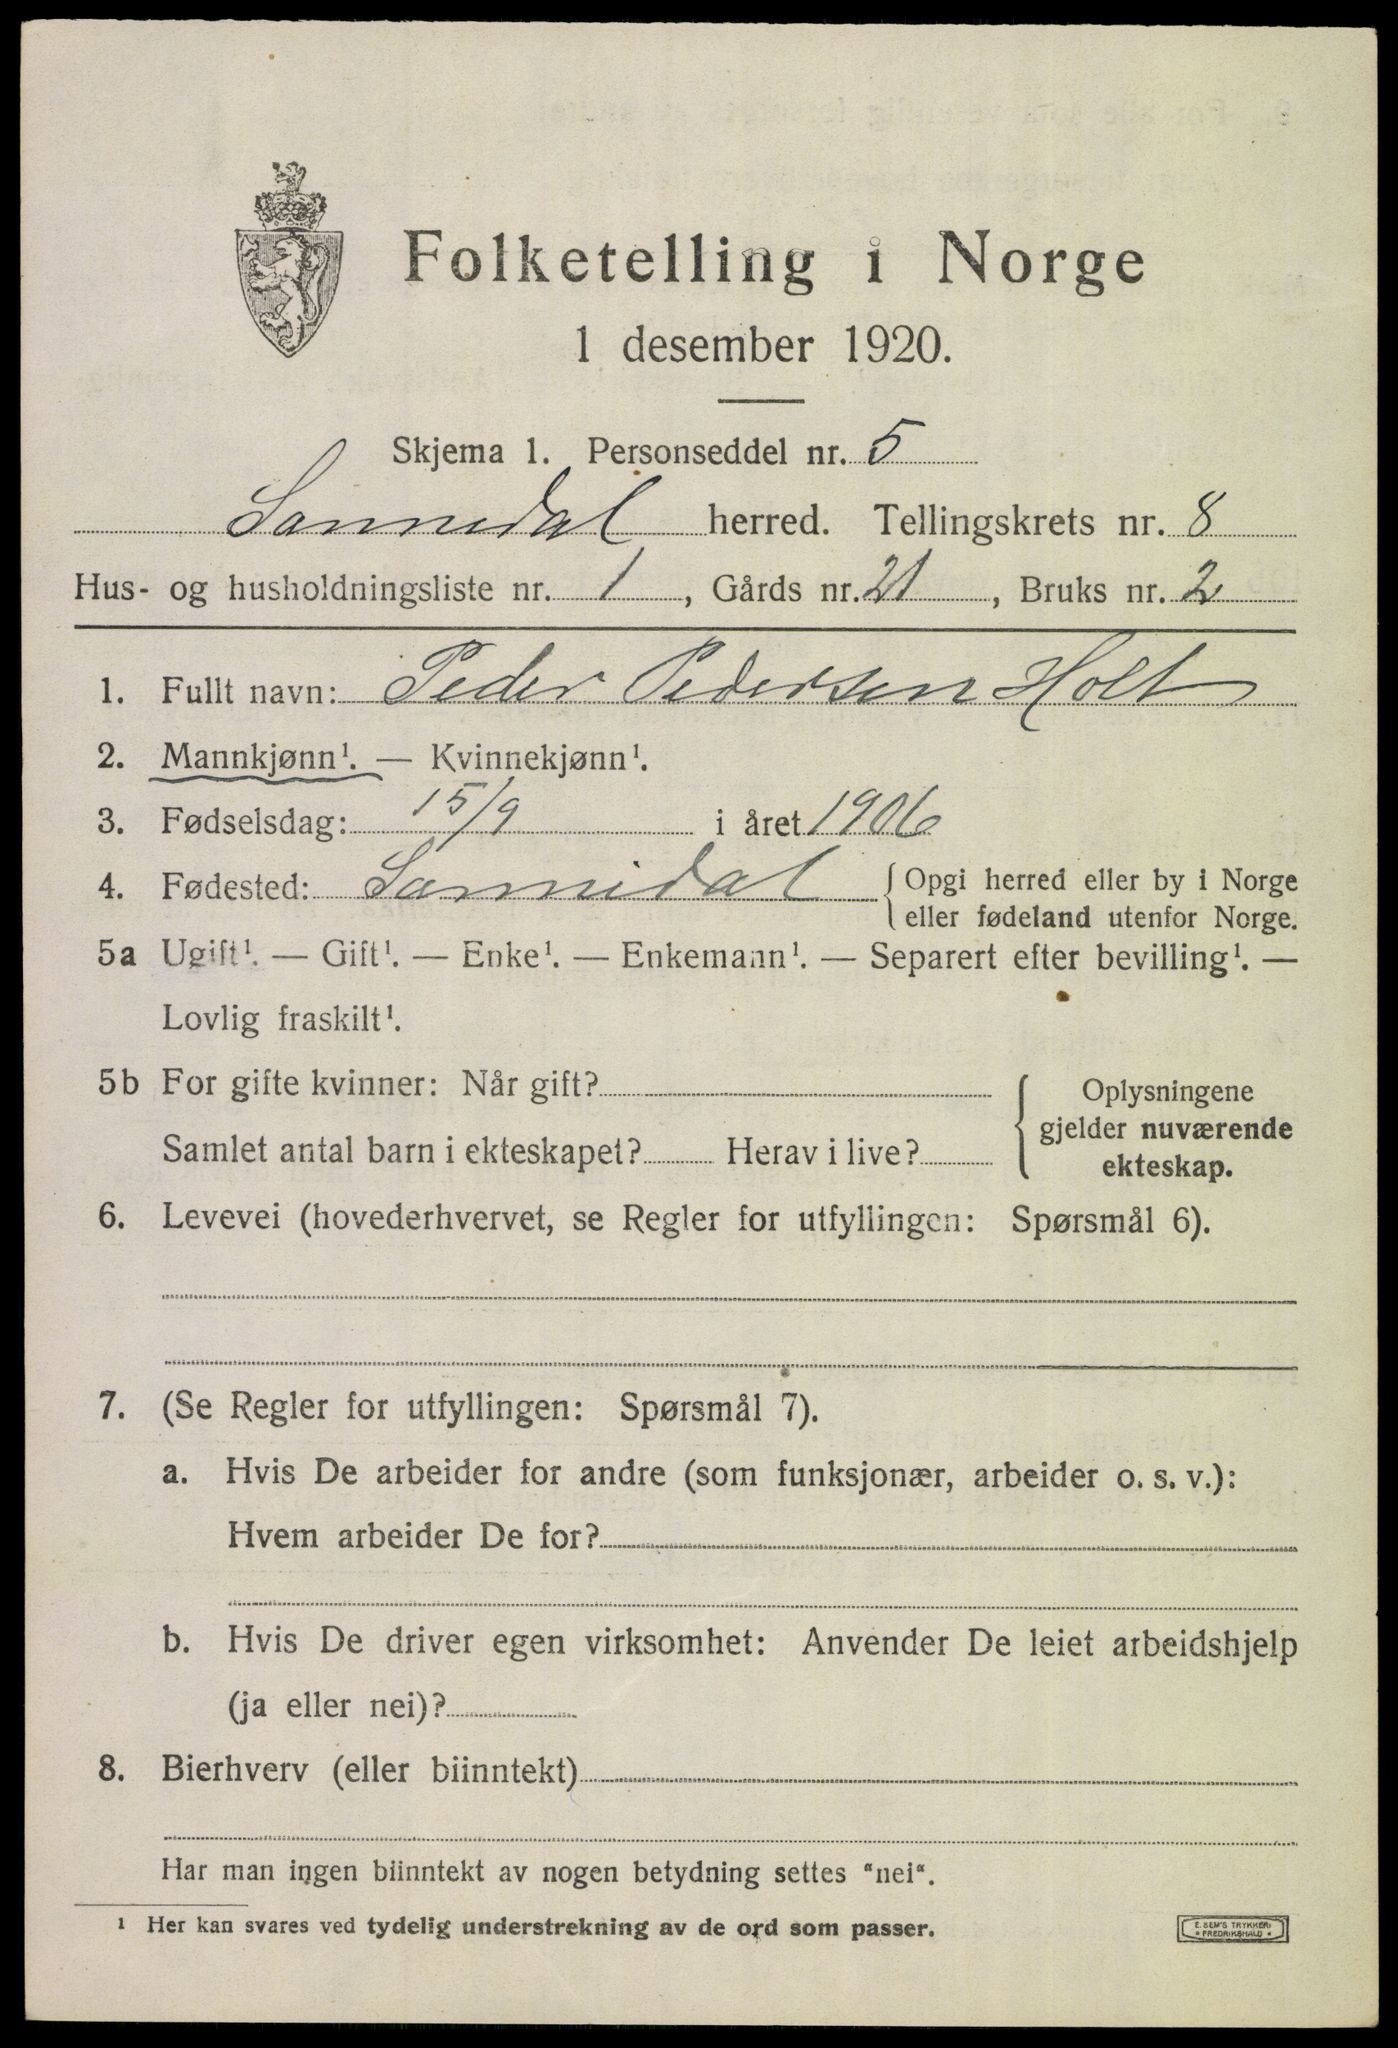 Folketelling i Norge
1 desember 1920.
Skjema 1. Personseddel nr. 5
Sannidal herred. Tellingskrets nr. 8
Hus- og husholdningsliste nr. 1, Gårds nr. 21, Bruks nr. 2
1. Fullt navn: Peder Pedersen Holt
2. Mannkjønn¹. — Kvinnekjønn¹.
3. Fødselsdag: 15/9 i året 1906
4. Fødested: Sannidal { Opgi herred eller by i Norge
eller fødeland utenfor Norge.
5a Ugift¹. — Gift¹. — Enke¹. — Enkemann¹. — Separert efter bevilling¹. —
Lovlig fraskilt¹.
5b For gifte kvinner: Når gift?
Samlet antal barn i ekteskapet? Herav i live?
Oplysningene
gjelder nuværende
ekteskap.
6. Levevei (hovederhvervet, se Regler for utfyllingen: Spørsmål 6).
7. (Se Regler for utfyllingen: Spørsmål 7).
a. Hvis De arbeider for andre (som funksjonær, arbeider o. s. v.):
Hvem arbeider De for?
b. Hvis De driver egen virksomhet: Anvender De leiet arbeidshjelp
(ja eller nei)?
8. Bierhverv (eller biinntekt)
Har man ingen biinntekt av nogen betydning settes "nei".
¹ Her kan svares ved tydelig understrekning av de ord som passer.
E. SEM'S TRYKKERI
* FREDRIKSHALD *